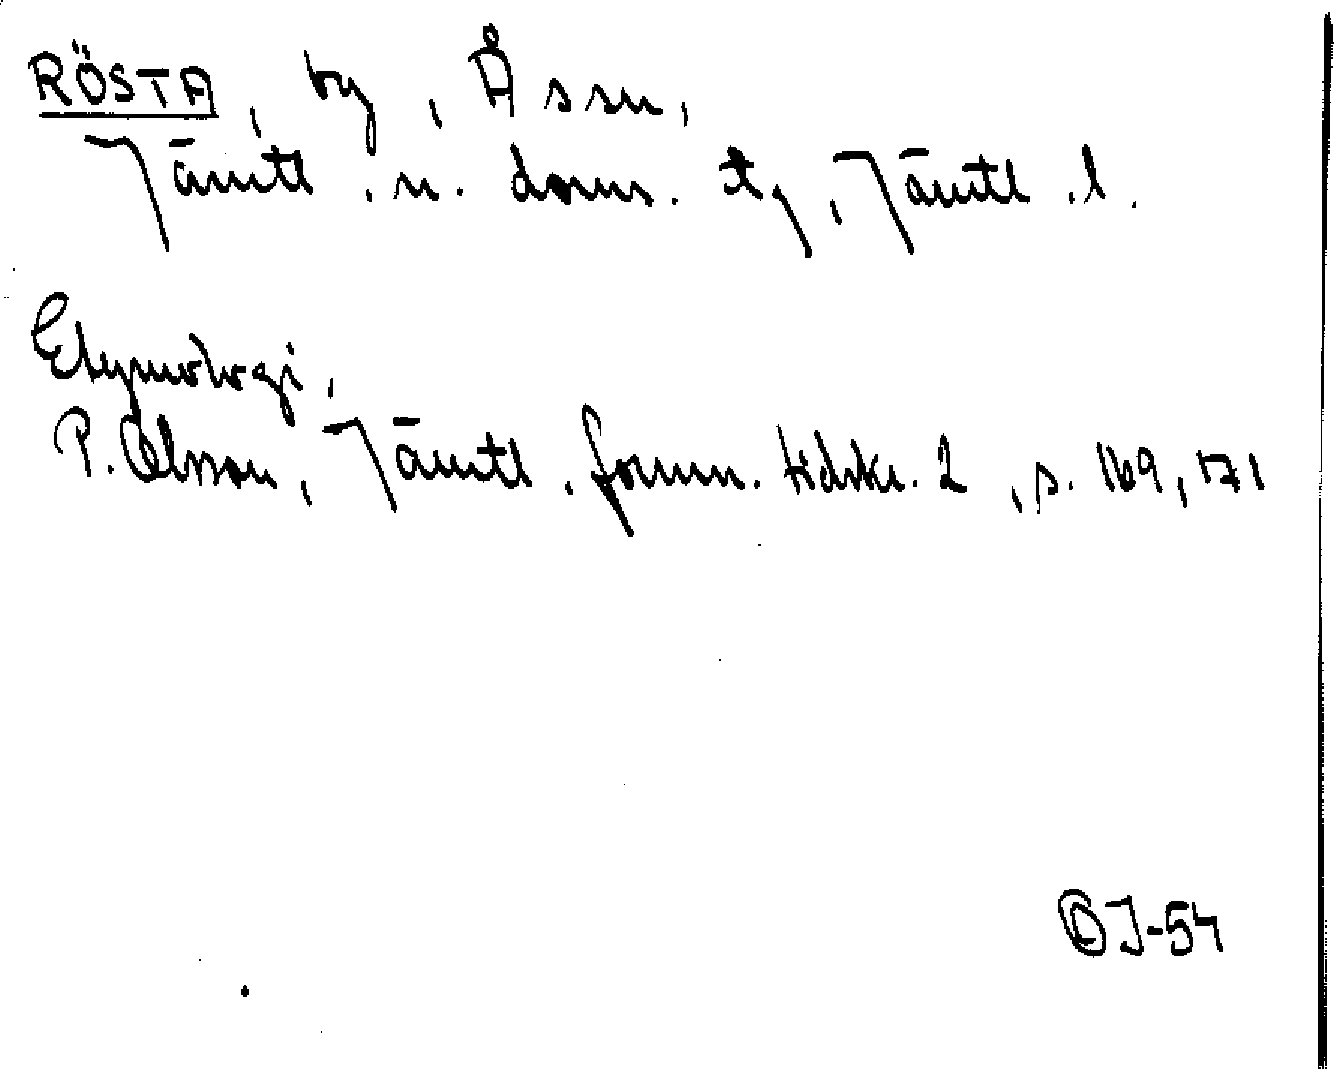 RÖSTA, by, Ås sn,
Jämtl. n. doms. tg, Jämtl. l.
Etymologi.
P. Olsson, Jämtl. fornm. tidskr. 2, s. 169, 171
OJ-54